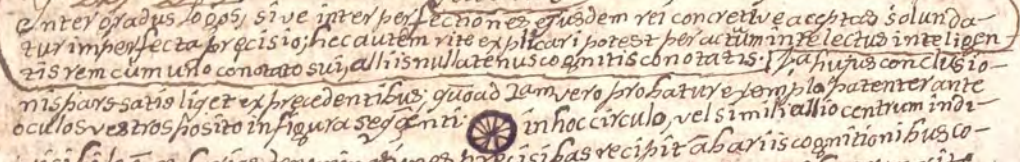 enter gradus logos, sive inter perfectiones ejusdem rei concretive acceptas solunda-
tur imperfecta precisio; hec autem rite explicari potest per actum intelectus inteligen
tis rem cum uno conotato sui, alliis nullatenus cognitis conotatis. 2a hujus conclusio-
nis pars satis liqet ex precedentibus; quoad 2am vero probatur exemplo patenter ante
oculos vestros posito in figura seqenti in hoc circulo, vel simili allio centrum indi-
precisibas recipit ab ariis cognitionibus co-